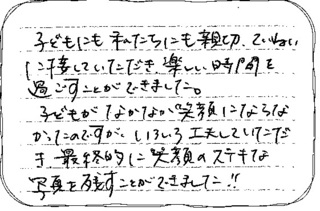 子どもにも私たちにも親切、ていねい
に接していただき、楽しい時間を
過ごすことができました。
子どもがなかなか笑顔にならな
かったのですが、いろいろ工夫していただ
き最終的に笑顔のステキな
写真を残すことができました!!